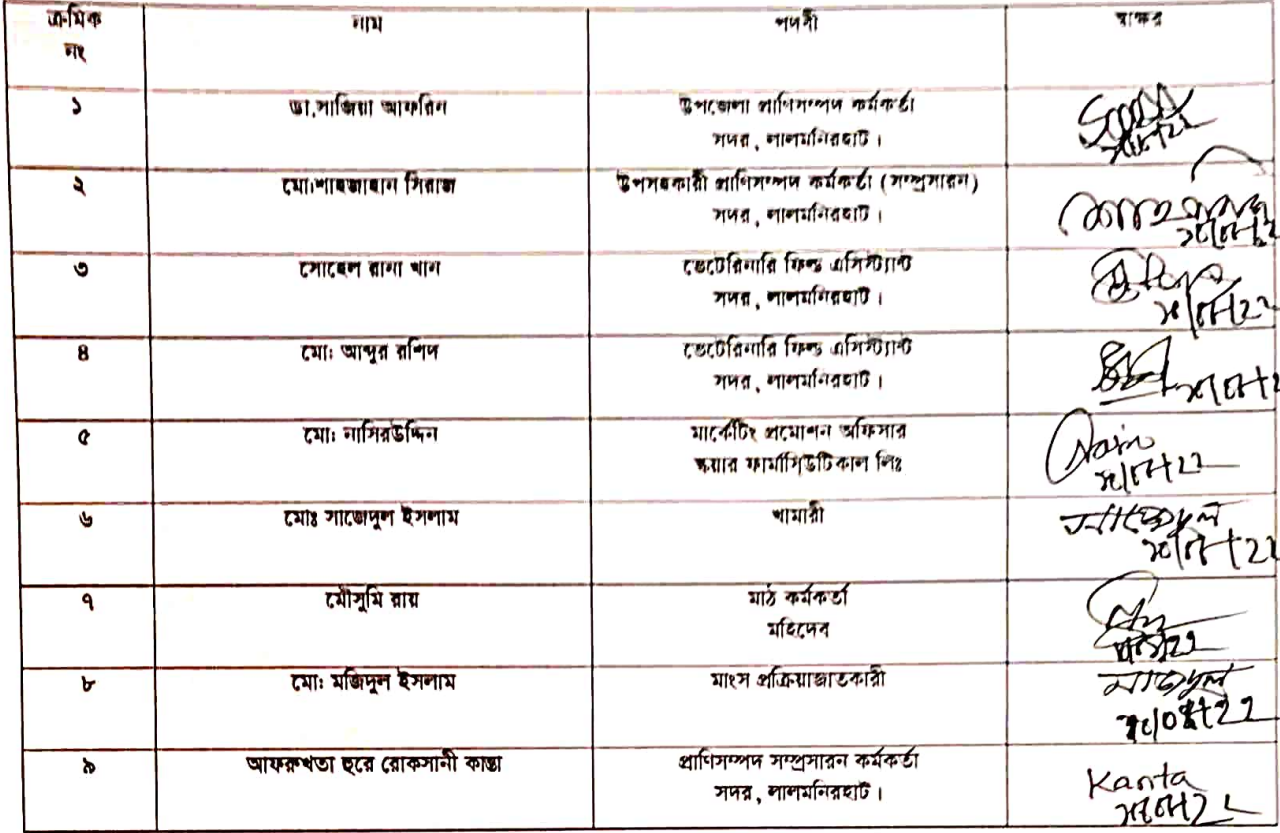 ক্রমিক নাম পদবী স্বাক্ষর
নং
১ ডা.সাজিয়া আফরিন উপজেলা প্রাণিসম্পদ কর্মকর্তা
সদর, লালমনিরহাট।
২ মো:শাহজাহান সিরাজ উপসহকারী প্রাণিসম্পদ কর্মকর্তা (সম্প্রসারন)
সদর, লালমনিরহাট।
৩ সোহেল রানা খান ভেটেরিনারি ফিল্ড এসিস্ট্যান্ট
সদর, লালমনিরহাট।
৪ মো: আব্দুর রশিদ ভেটেরিনারি ফিল্ড এসিস্ট্যান্ট
সদর, লালমনিরহাট।
৫ মো: নাসিরউদ্দিন মার্কেটিং প্রমোশন অফিসার
স্কয়ার ফার্মাসিউটিকাল লিঃ
৬ মোঃ সাজেদুল ইসলাম খামারী সাজেদুল
৭ মৌসুমি রায় মাঠ কর্মকর্তা
মহিদেব
৮ মো: মজিদুল ইসলাম মাংস প্রক্রিয়াজাতকারী
৯ আফরুখতা হুরে রোকসানী কান্তা প্রাণিসম্পদ সম্প্রসারন কর্মকর্তা Kanta
সদর, লালমনিরহাট।